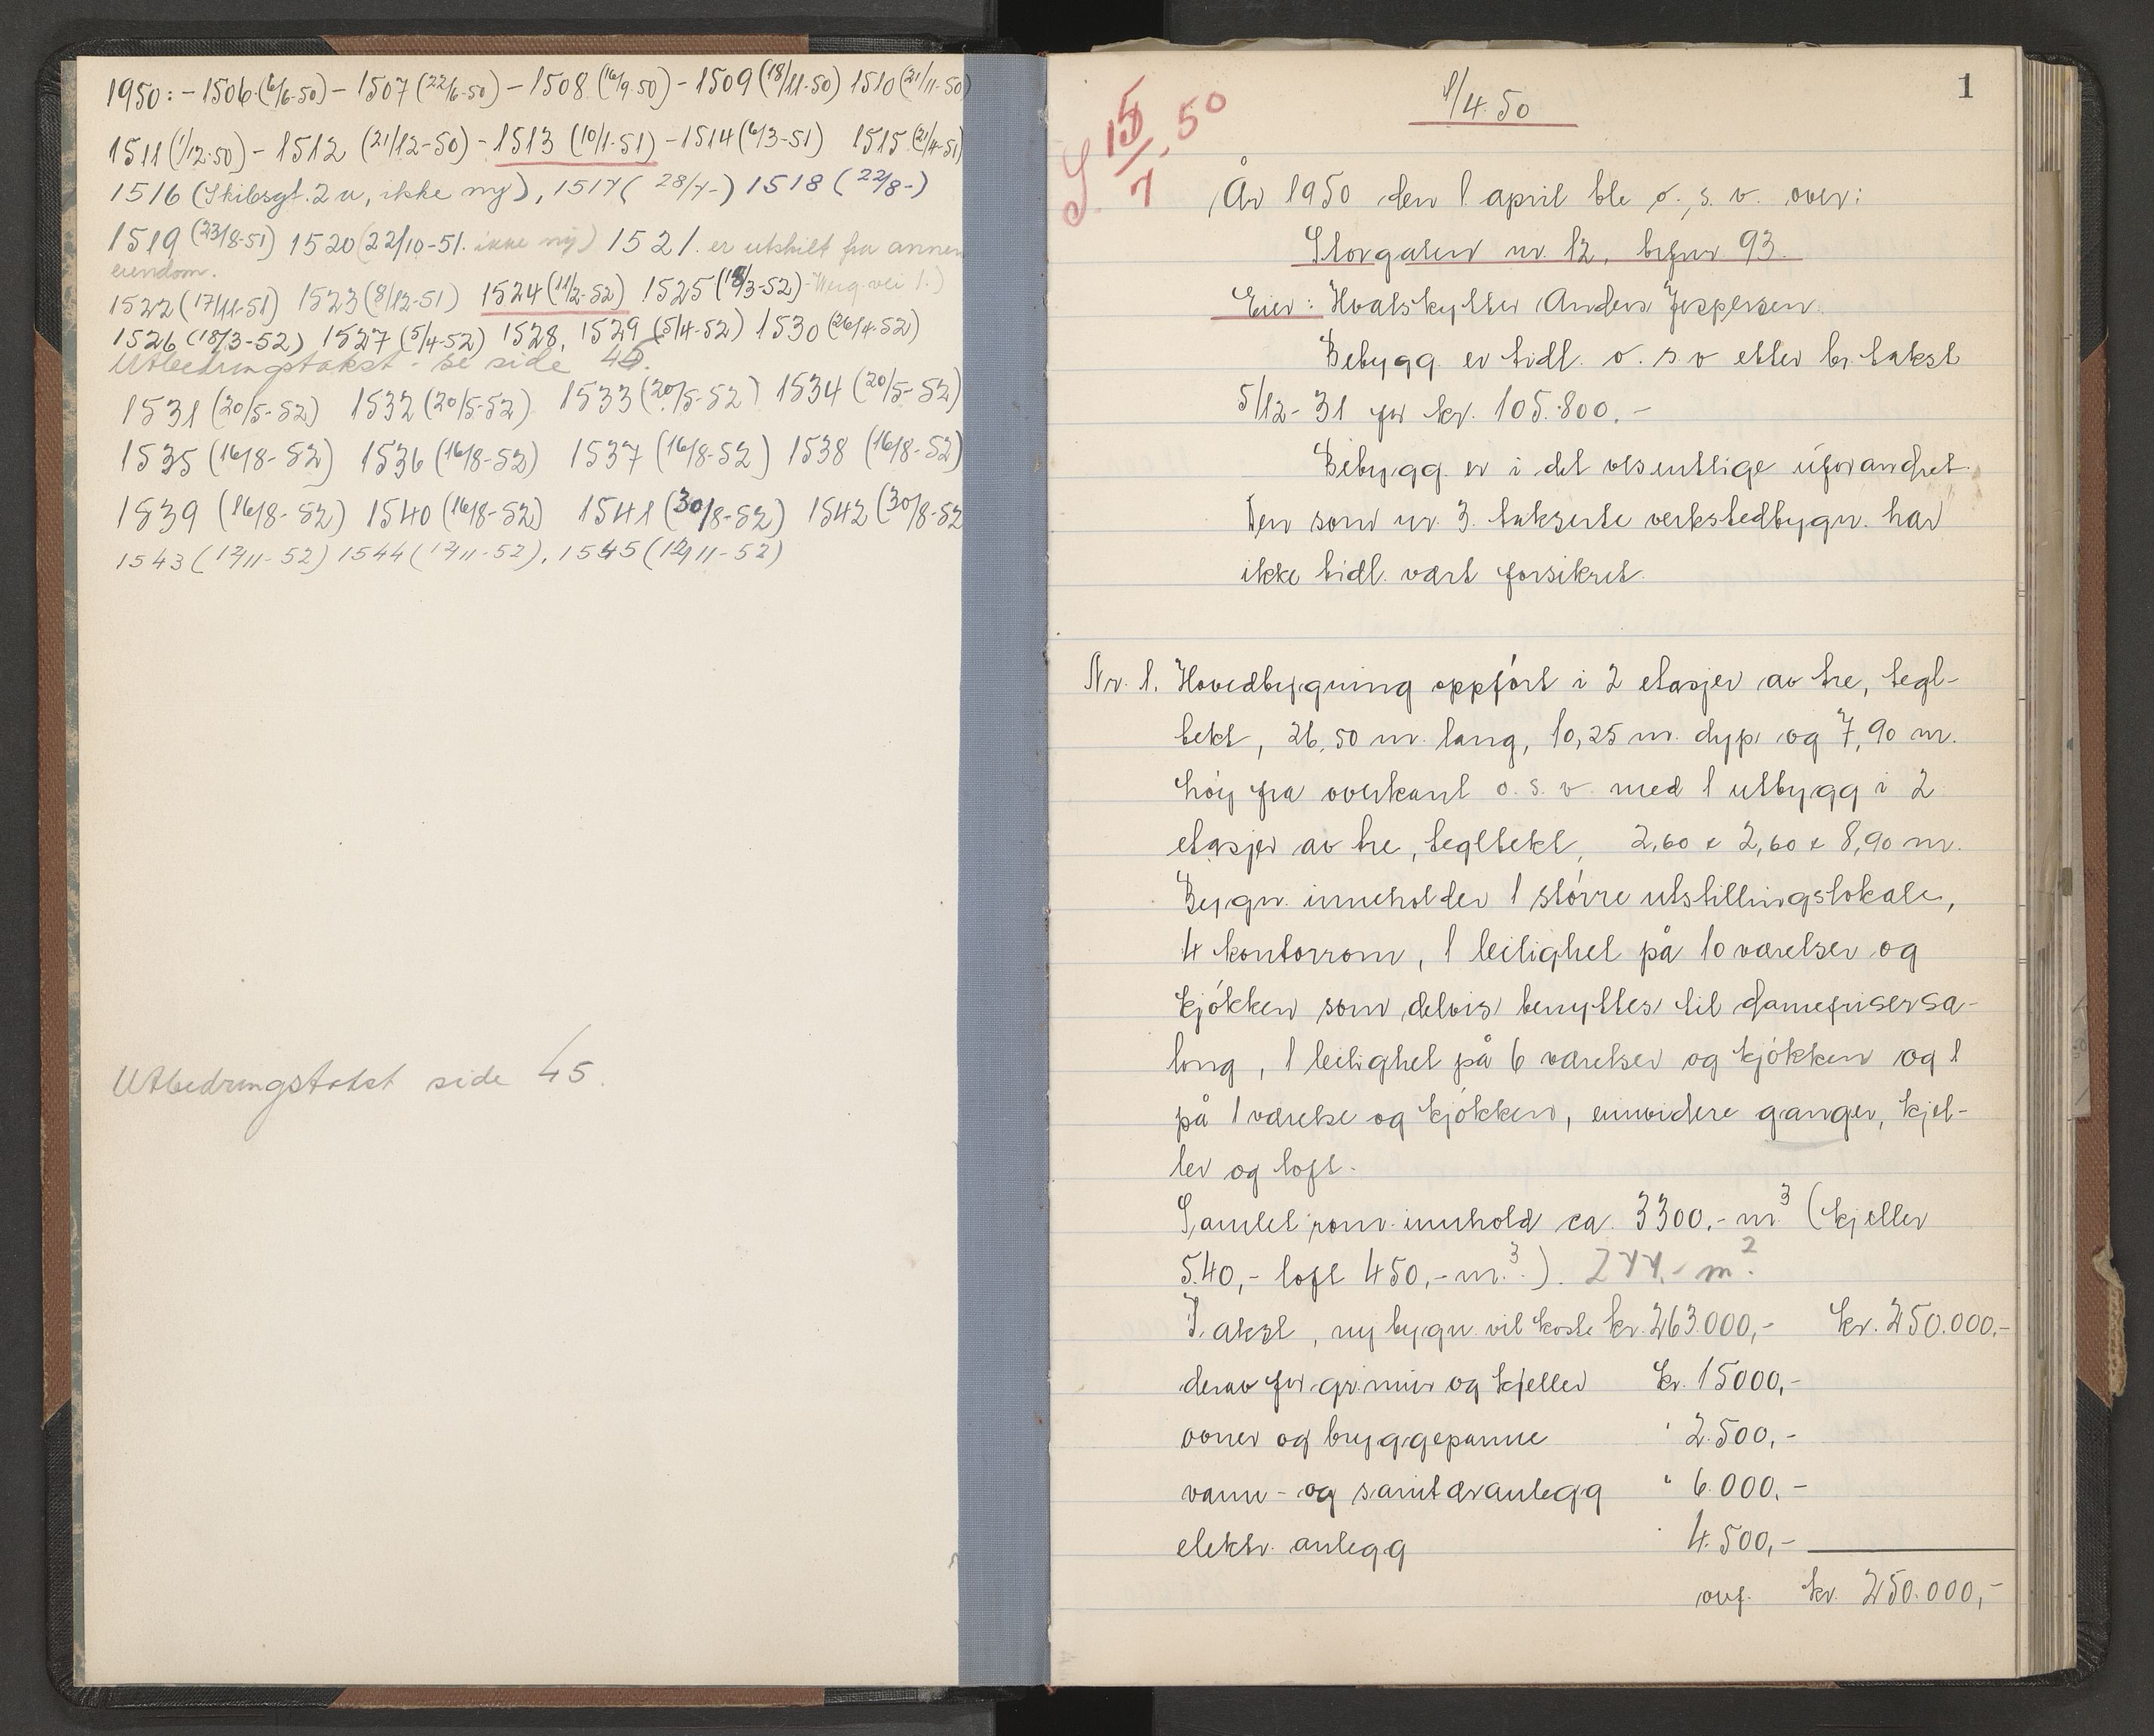 1950: - 1506 (6/6-50) - 1507 (22/6-50) - 1508 (16/9-50) - 1509 (18/11-50) 1510 (21/11-50)
1511 (1/12-50) - 1512 (21/12-50) - 1513 (10/1-51) - 1514 (6/3-51) 1515 (21/4-51)
1516 (Skibsgt. 2 u, ikke ny), 1517 (28/7-) 1518 (22/8-)
1519 (23/8-51) 1520 (22/10-51. ikke ny) 1521. er utskilt fra annen
eiendom.
1522 (17/11-51) 1523 (8/12-51) 1524 (11/2-52) 1525 (18/3-52) vei 1.)
1526 (18/3-52) 1527 (5/4-52) 1528, 1529 (5/4-52) 1530 (26/4-52)
Utbedringstakst - se side 45.
1531 (20/5-52) 1532 (20/5-52) 1533 (20/5-52) 1534 (20/5-52)
1535 (16/8-52) 1536 (16/8-52) 1537 (16/8-52) 1538 (16/8-52)
1539 (16/8-52) 1540 (16/8-52) 1541 (30/8-52) 1542 (30/8-52
1543 (12/11-52) 1544 (12/11-52), 1545 (12/11-52)
Utbedringstakst side 45.
1
S. 15/7.50
1/4.50
År 1950 den 1. april ble o. s. v. over:
Storgaten nr. 12, brfnr. 93.
Eier: Hvalskytter Anders Jespersen.
Bebygg. er tidl. o. s. v etter br. takst
5/12-31 for kr. 105.800.-
Bebygg. er i det vesentlige uforandret.
Den som nr. 3. takserte verkstedbygn. har
ikke tidl. vært forsikret.
Nr. 1. Hovedbygning oppført i 2 etasjer av tre, tegl-
tekt, 26,50 m. lang, 10,25 m. dyp og 7,90 m.
høy fra overkant o. s. v. med 1 utbygg i 2
etasjer av tre, tegltekt, 2,60 x 2,60 x 8,90 m.
Bygn. inneholder 1 større utstillingslokale,
4 kontorrom, 1 leilighet på 10 værelser og
kjøkken som delvis benyttes til damefrisersa-
long, 1 leilighet på 6 værelser og kjøkken og 1
på 1 værelse og kjøkken, ennvidere ganger, kjel-
ler og loft.
Samlet rom-innhold ca. 3300,- m³ (kjeller
540,- loft 450,- m.³). 277,- m².
Takst, ny bygn. vil koste kr. 263.000,- kr. 250.000,-
derav for gr.mur og kjeller kr. 15000,-
ovner og bryggepanne " 2.500,-
vann- og sanitæranlegg " 6.000,-
elektr. anlegg " 4.500,-
ovf. kr. 250.000,-